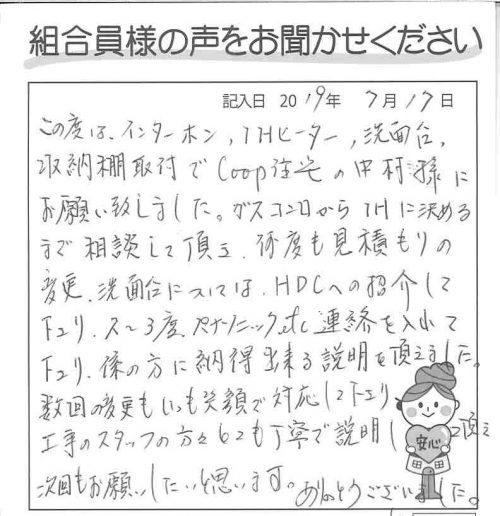 組合員様の声をお聞かせください
記入日 2019年 7月17日
この度は、インターホン、IHヒーター、洗面台、
収納棚取付でCoop住宅の中村様に
お願い致しました。ガスコンロからIHに決める
まで相談して頂き、何度も見積もりの
変更、洗面台については、HDCへの紹介して
下さり、2〜3度、パナソニックetc連絡を入れて
下さり、係の方に納得出来る説明を頂きました。
数回の変更もいつも笑顔で対応して下さり
工事のスタッフの方々もとても丁寧で説明し て頂き
次回もお願いしたいと思います。ありがとうございました。
安心